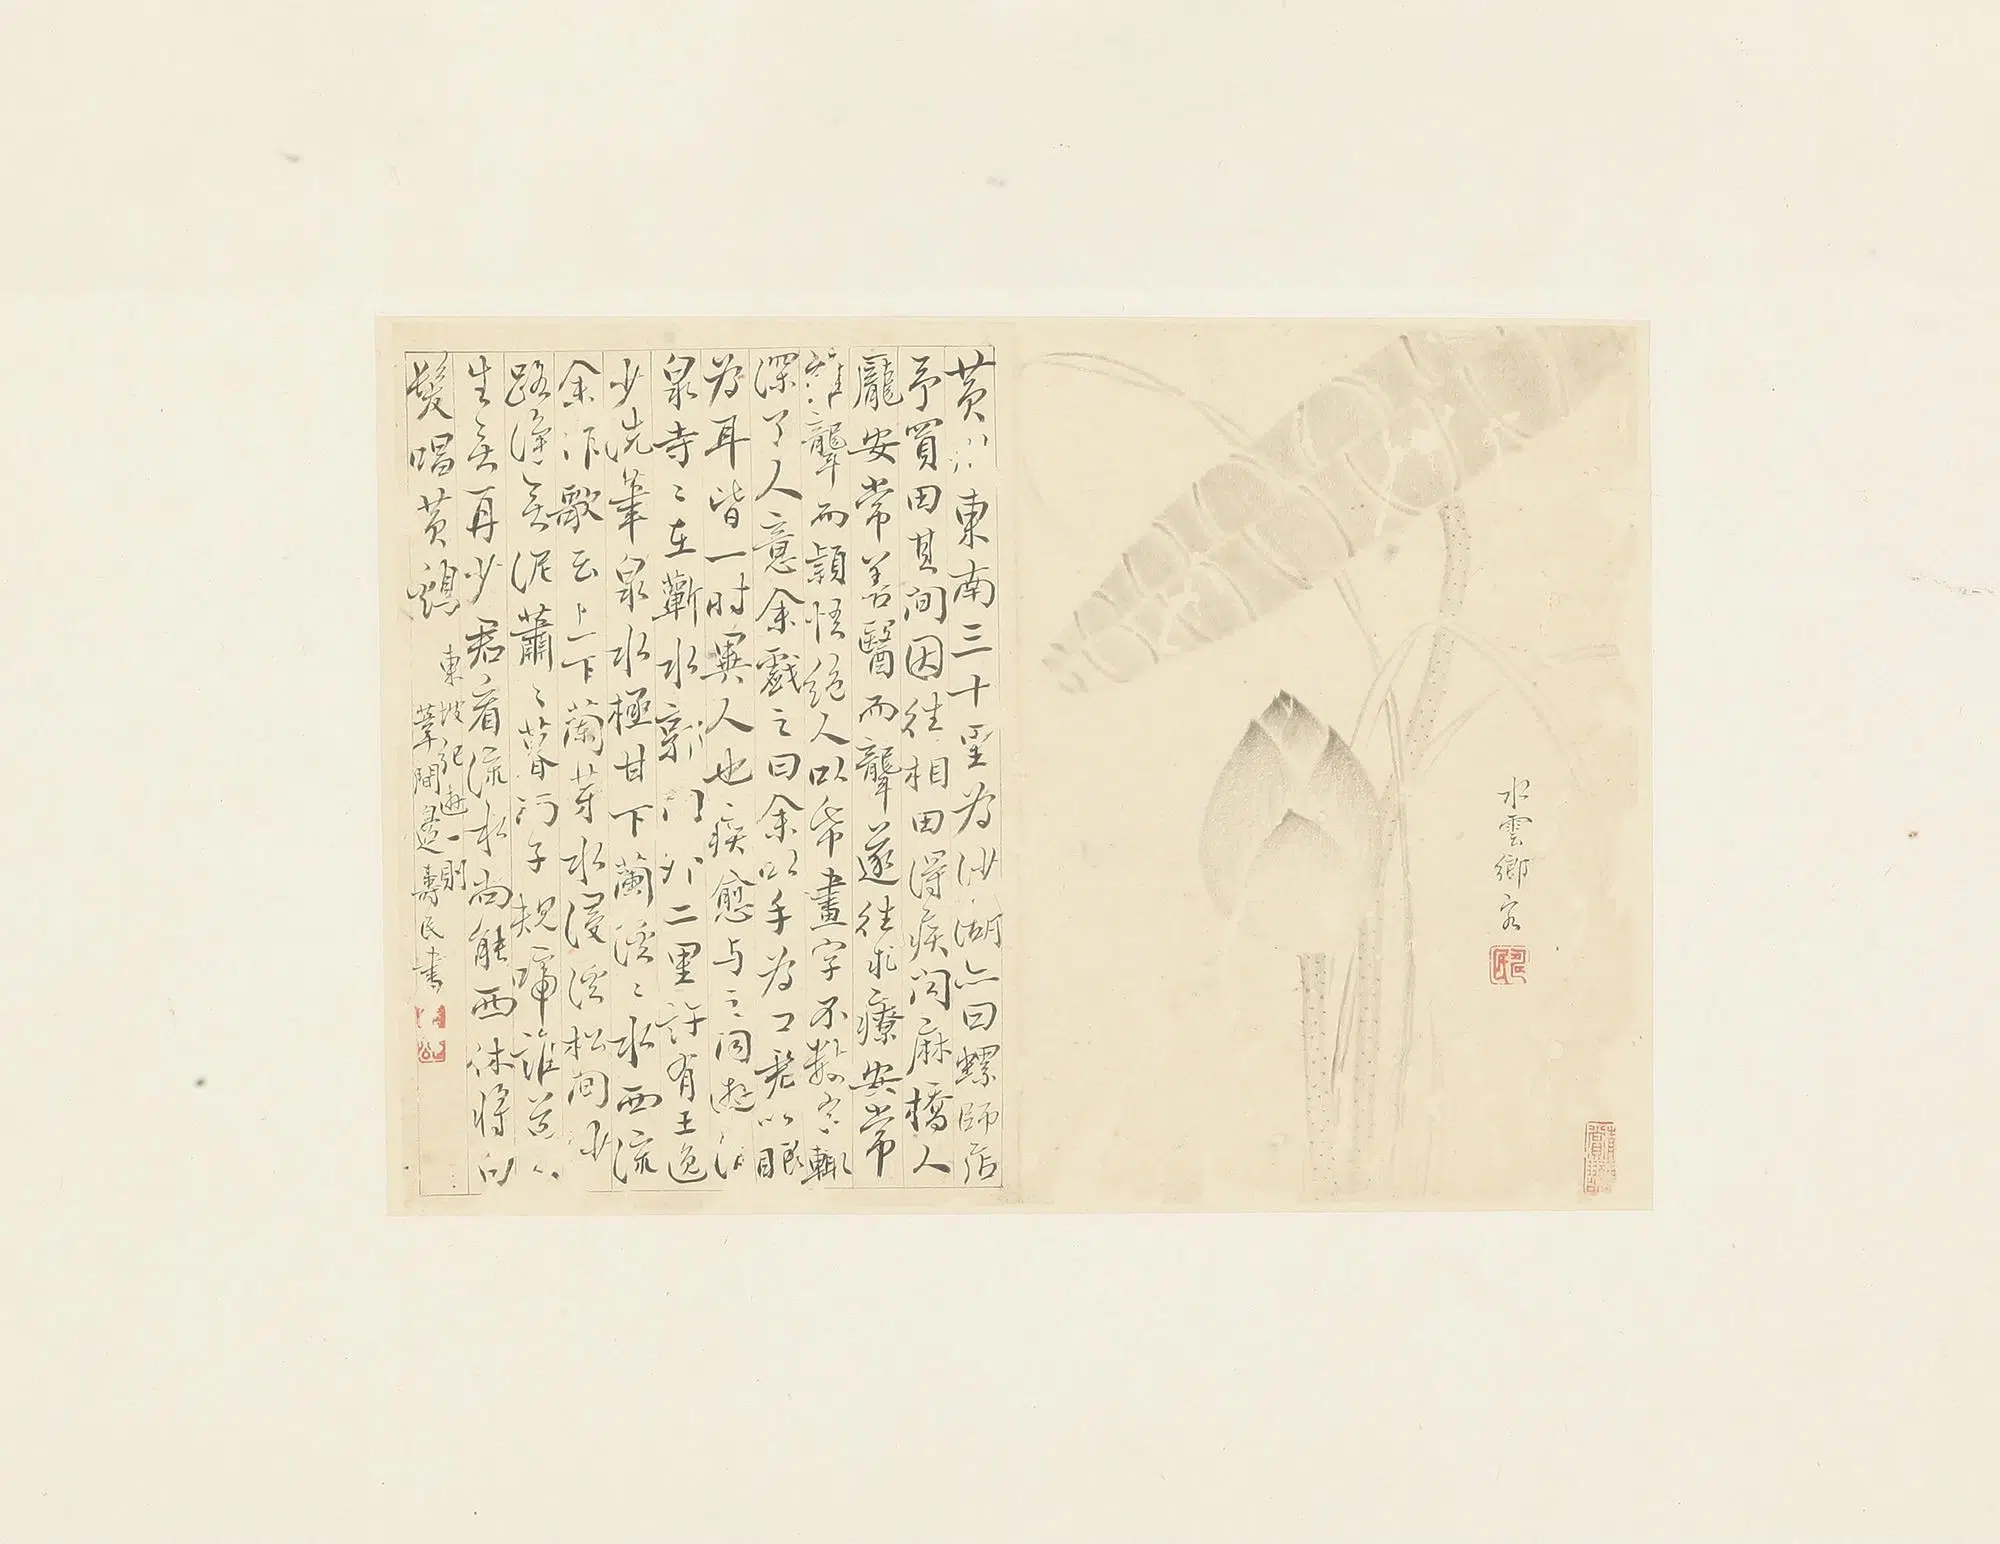 水雲鄉客
黃州東南三十里為沙湖亦曰螺師店
予買田其間因往相田得疾聞麻橋人
龐安常善醫而聾遂往求療安常
雖聾而穎悟絕人以帋畫字不數字輒
深了人意余戲之曰余以手為口君以眼
為耳皆一時異人也疾愈与之同遊清
泉寺〻在蘄水郭門外二里許有王逸
少洗筆泉水極甘下蘭溪〻水西流
余作歌云山下蘭芽水浸溪松間沙
路淨無泥蕭〻暮雨子規啼誰道人
生無再少君看流水尚能西休將白
髮唱黃鷄
東坡紀遊一則
葦間邊壽民書